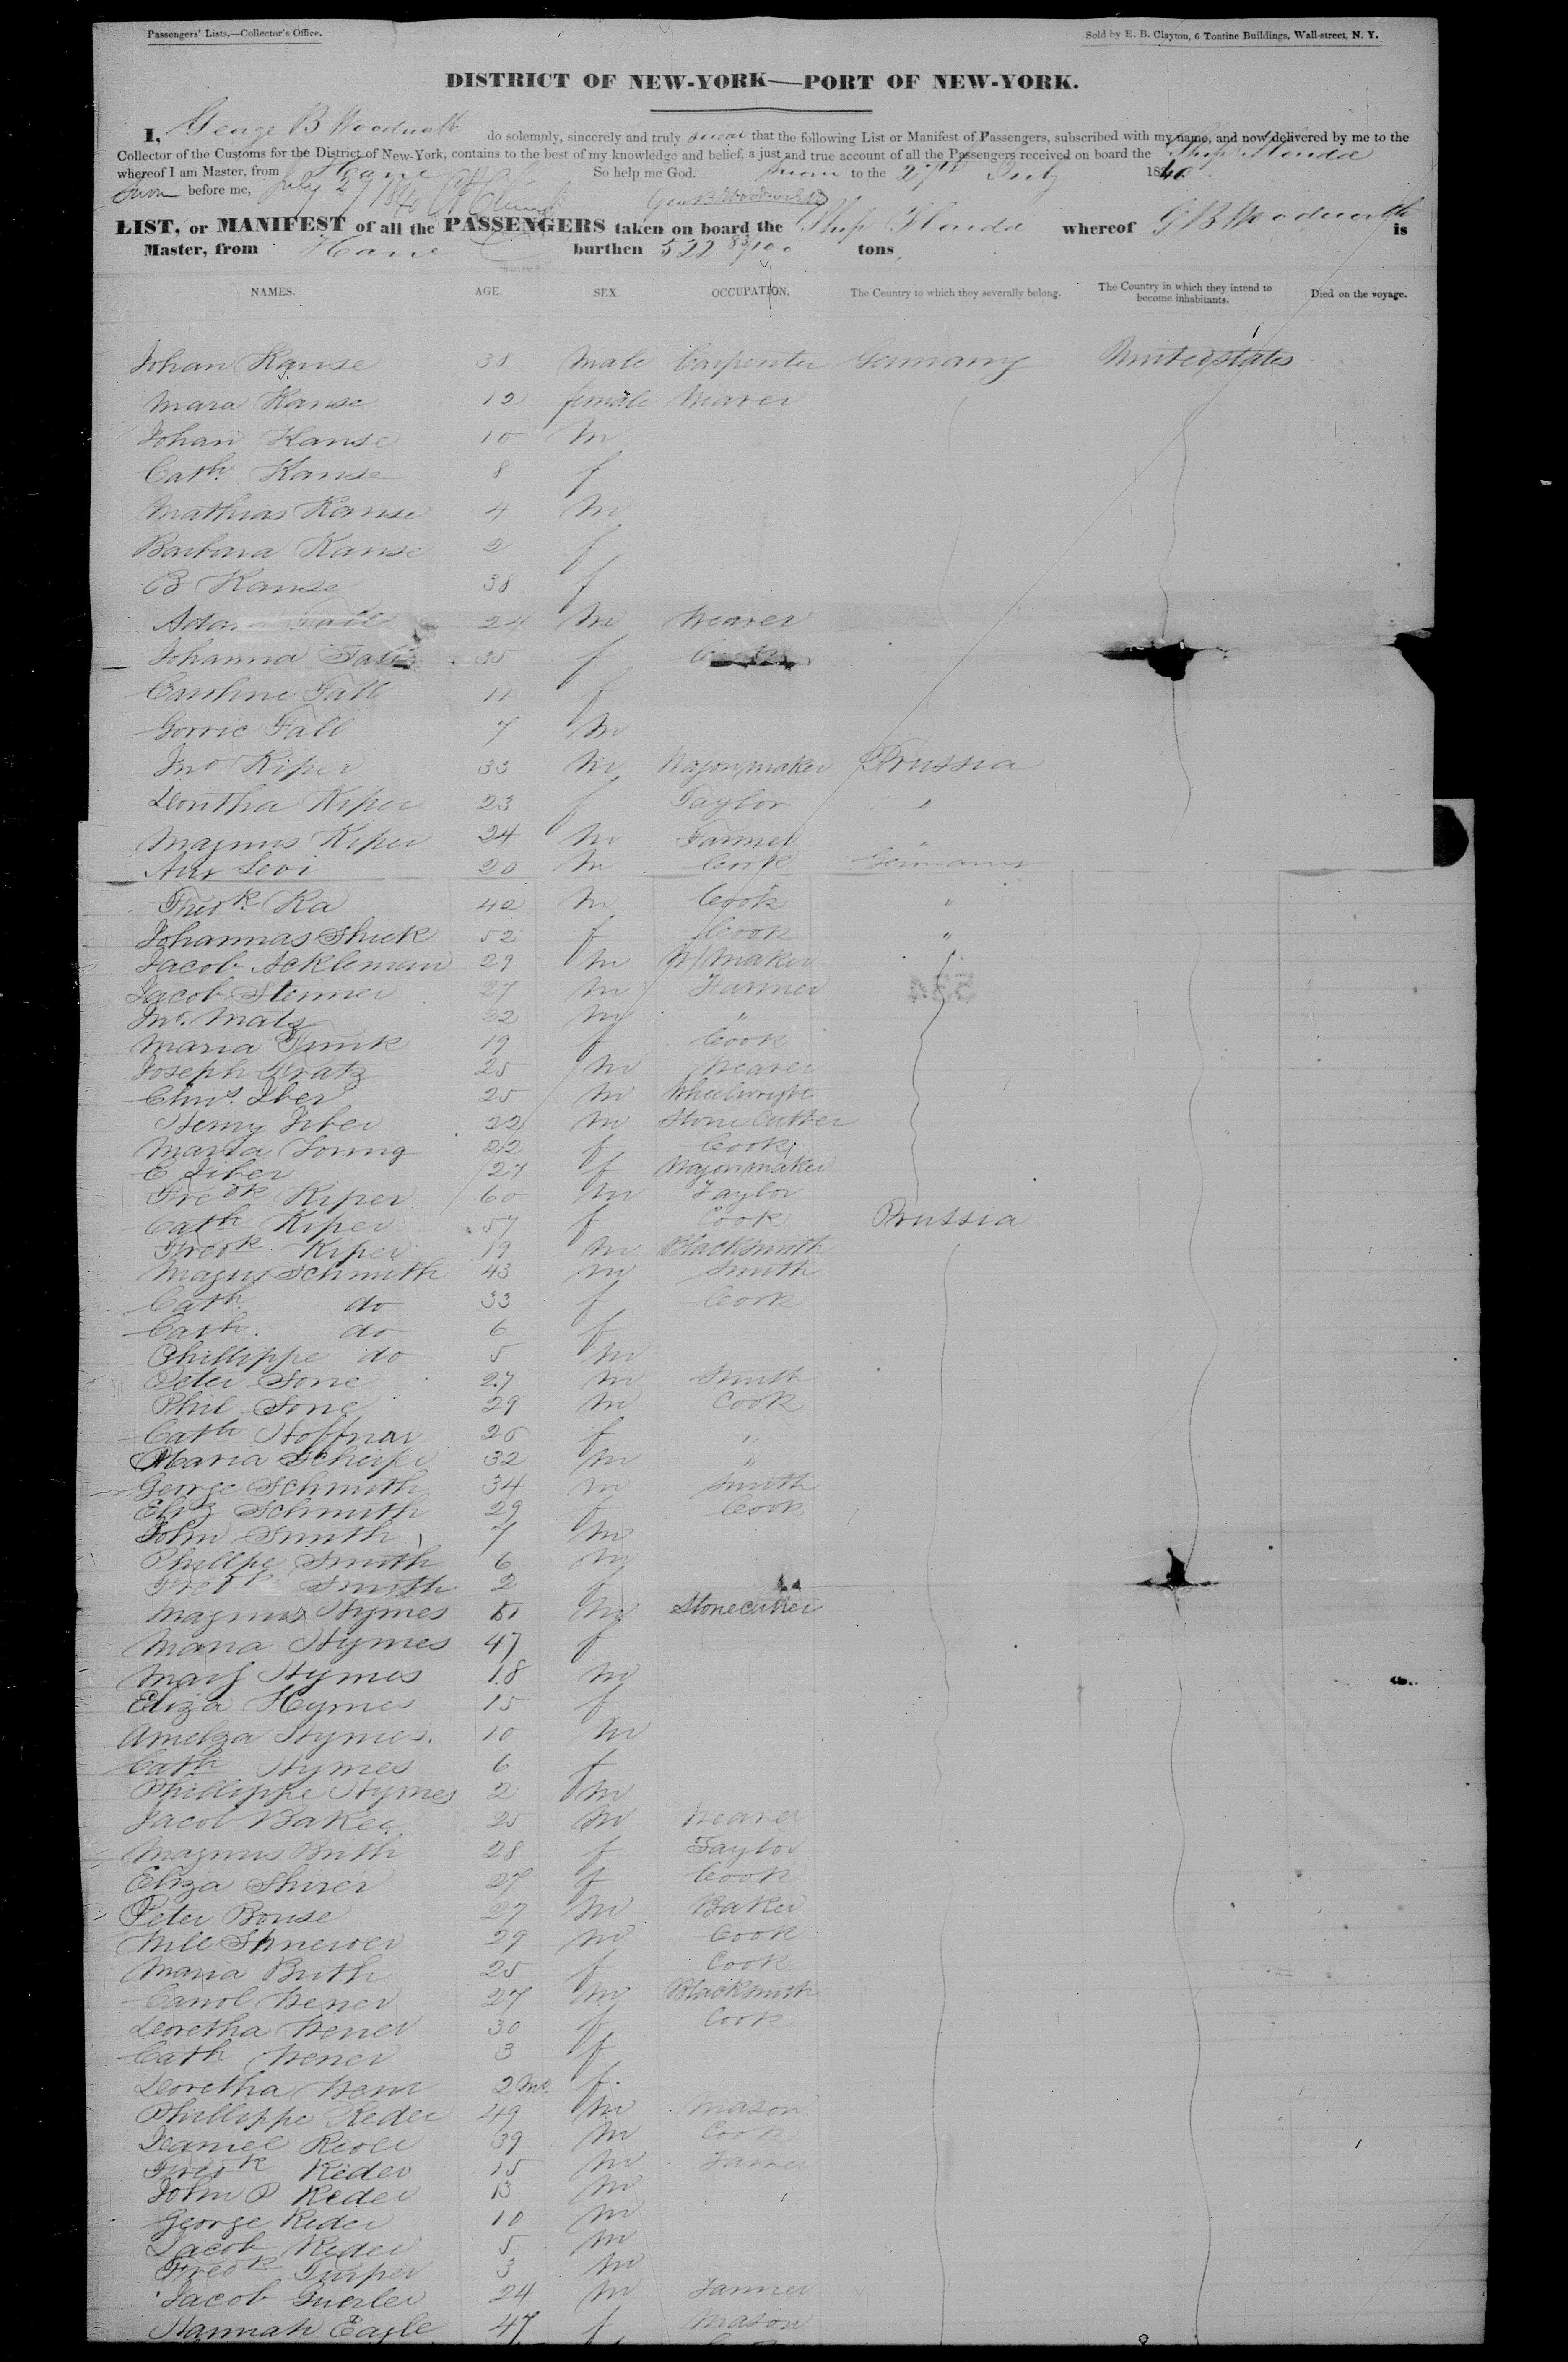 Passengers' Lists.—Collector's Office.
Sold by E. B. Clayton, 6 Tontine Buildings, Wall-street, N. Y.
DISTRICT OF NEW-YORK—PORT OF NEW-YORK.
I, George B Woodworth do solemnly, sincerely and truly swear that the following List or Manifest of Passengers, subscribed with my name, and now delivered by me to the
Collector of the Customs for the District of New-York, contains to the best of my knowledge and belief, a just and true account of all the Passengers received on board the Ship Florida
whereof I am Master, from Havre So help me God. Sworn to the 27th July 1840
Sworn before me, July 27 1840 Geo B Woodworth
LIST, or MANIFEST of all the PASSENGERS taken on board the Ship Florida whereof G B Woodworth is
Master, from Havre burthen 522 83/100 tons
NAMES. AGE. SEX. OCCUPATION. The Country to which they severally belong. The Country in which they intend to become inhabitants. Died on the voyage.
Johan Kanse 38 male Carpenter Germany United states
Mara Kanse 12 female Weaver
Johan Kanse 10 m
Cath. Kanse 8 f
Mathias Kanse 4 m
Barbara Kanse 2 f
B Kanse 38 f
24 m Weaver
Johanna Fall 35 f
Caroline Fall 11 f
Gorrie Fall 7 m
Jno Kiper 33 m Wagonmaker Prussia
Doritha Kiper 23 f Taylor "
Magnus Kiper 24 m Farmer "
Levi 20 m Cook Germany
Fredk. Ka 42 m Cook "
Johannas Shick 52 f Cook "
Jacob Ackleman 29 m W/maker
Jacob Stenner 27 m Farmer
Jno. Matz 22 m "
Maria Funk 19 f Cook
Joseph Gratz 25 m Weaver
Chas. Iber 25 m Wheelwright
Henry Iiber 22 m Stone Cutter
Maria Young 22 f Cook
C Iiber 27 f Wagonmaker
Fredk Kiper 60 m Taylor
Cath Kiper 57 f Cook Prussia
Fredk Kiper 19 m Blacksmith
Magus Schmith 43 m Smith
Cath. do 33 f Cook
Cath. do 6 f
Phillippe do 5 m
Peter Sone 27 m Smith
Phil Sone 29 m Cook
Cath Hoffnar 26 f "
Maria Scheifer 32 m "
George Schmith 34 m Smith
Eliz Schmith 29 f Cook
John Smith 7 m
Phillpe Smith 6 m
Fredk Smith 2
Magnus Hymes 51 m Stonecutter
Maria Hymes 47 f
Hymes 18 m
Eliza Hymes 15 f
Amelza Hymes 10 m
Cath Hymes 6 f
Phillippe Hymes 2 m
Jacob Baker 25 m Weaver
Magnus Bith 28 f Taylor
Eliza Shirer 27 f Cook
Peter Bouse 27 m Baker
29 m Cook
Maria Bith 25 f Cook
Carrol Wener 27 m Blacksmith
Doretha Wener 30 f Cook
Cath Wener 3 f
Doretha Wener 2 mo. f.
Phillippe Reder 49 m Mason
Daniel Reder 39 m Cook
Fredk Reder 15 m Farmer
John P Reder 13 m
George Reder 10 m
Jacob Reder 5 m
Fredk 3 m
Jacob 24 m Farmer
Hannah Eagle 47 f Mason